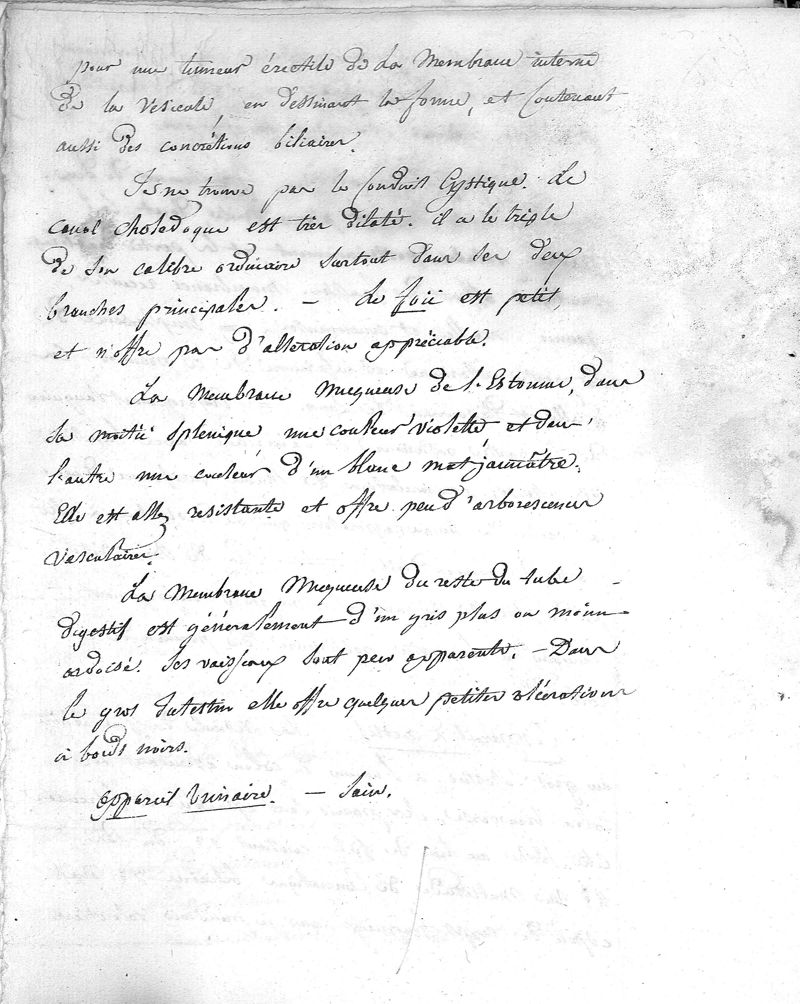 pour une tumeur érectile de la Membrane interne
de la vesicule en dessinant la forme, et Contenant
aussi des concrétions biliaires.
Je ne trouve pas le Conduit Cystique. Le
canal choledoque est très dilaté. il a le triple
de son calibre ordinaire surtout dans ses deux
branches principales. — Le foie est petit,
et n'offre pas d'alteration appréciable.
La Membrane Muqueuse de l'Estomac, dans
sa moitié splenique une couleur violette et dans
l'autre une couleur d'un blanc mat jaunâtre.
Elle est assez resistante et offre peu d'arborescences
vasculaires.
La Membrane Muqueuse du reste du tube
digestif est généralement d'un gris plus ou moins
ardoisé. Ses vaisseaux sont peu apparents. — Dans
le gros Intestin elle offre quelques petites ulcérations
à bords noirs.
Appareil Urinaire. — Sain.